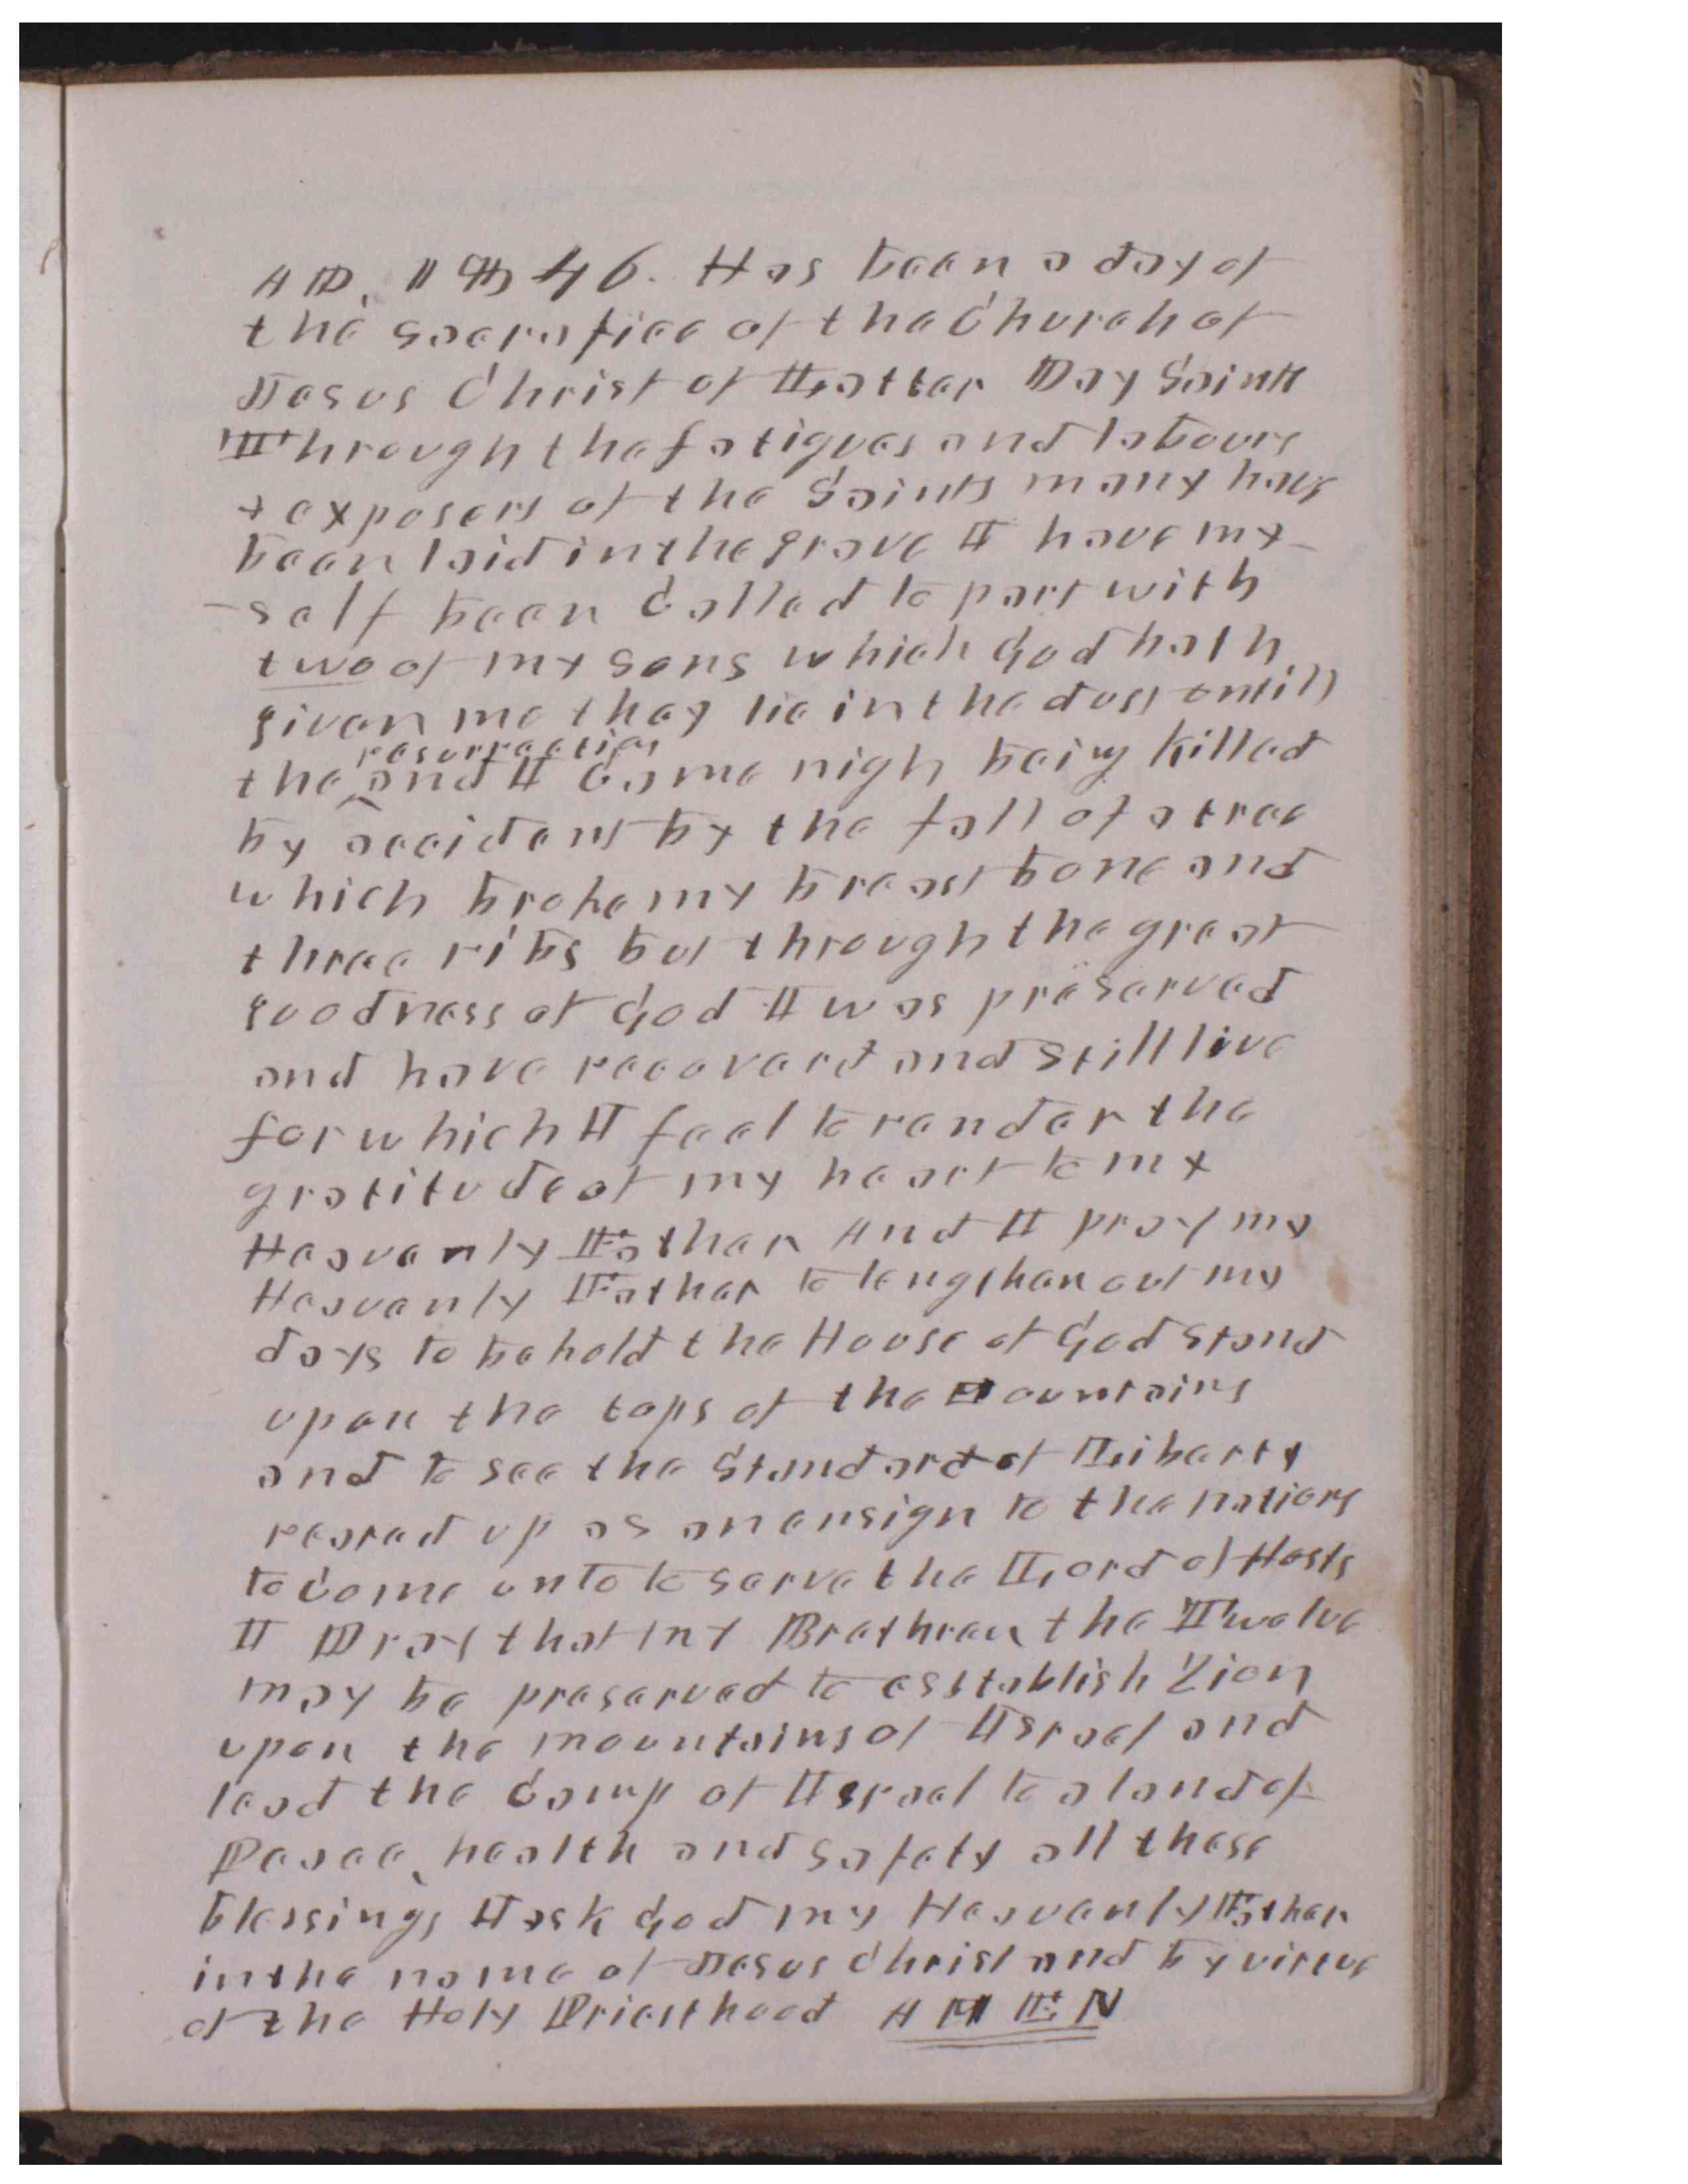 AD, 1846. Has been a day of
the sacrafice of the Church of
Jesus Christ of Latter Day Saints
Through the fatigues and labours
+ exposers of the Saints many have
been laid in the grave I have my-
-self been Called to part with
two of my sons which God hath
given me they lie in the dust untill
resurrection
the ^ and I came nigh being killed
by accident by the fall of a tree
which broke my breast bone and
three ribs but through the great
goodness of God I was preserved
and have recoverd and still live
for which I feel to render the
gratitude of my heart to my
Heavenly Father And I pray my
Heavenly Father to lengthen out my
days to behold the House of God stand
upon the tops of the Mountains
and to see the Standard of Liberty
reared up as an ensign to the nations
to come unto to serve the Lord of Hosts
I Pray that my Brethren the Twelve
may be preserved to esstablish Zion
upon the mountains of Israel and
lead the Camp of Israel to a land of
Peace, health and safety all these
blessings I ask God my Heavenly Father
in the name of Jesus Christ and by virtue
of the Holy Priesthood AMEN